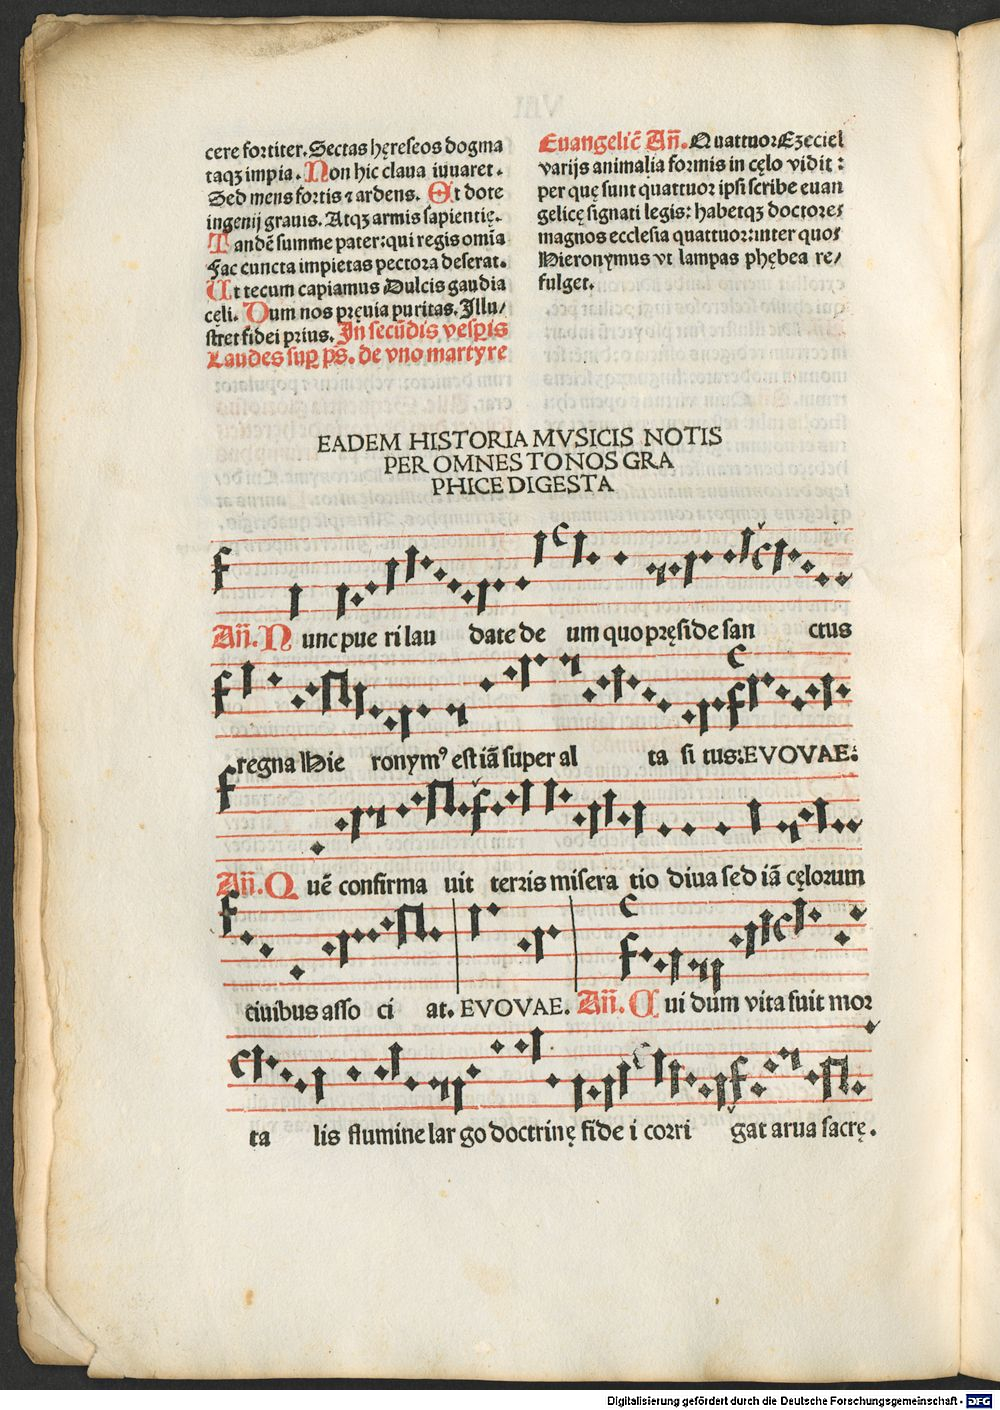 cere fortiter. Sectas hęreseos dogma
taqꝫ impia. Non hic claua iuuaret.
Sed mens fortis ⁊ ardens. Et dote
ingenij grauis. Atqꝫ armis sapientię.
Tandē summe pater: qui regis omīa
Fac cuncta impietas pectora deserat.
Ut tecum capiamus Dulcis gaudia
cęli. Dum nos pręuia puritas. Illu/
stret fidei prius. In secūdis vesꝑis
Laudes suꝑ ps. de vno martyre
Euangelic̄ Añ. Quattuor Ezeciel
varijs animalia formis in cęlo vidit:
per quę sunt quattuor ipsi scribe euan
gelicę signati legis: habetqꝫ doctores
magnos ecclesia quattuor: inter quos
Hieronymus vt lampas phębea re/
fulget.
EADEM HISTORIA MVSICIS NOTIS
PER OMNES TONOS GRA
PHICE DIGESTA
Añ. N unc pue ri lau date de um quo pręside san ctus
regna Hie ronymꝰ est iā super al ta si tus: EVOVAE:
Añ. Q uē confirma uit terris misera tio diua sed iā cęlorum
ciuibus asso ci at. EVOVAE. Añ. C ui dum vita fuit mor
ta lis flumine lar go doctrinę fide i corri gat arua sacrę.
Digitalisierung gefördert durch die Deutsche Forschungsgemeinschaft - DFG